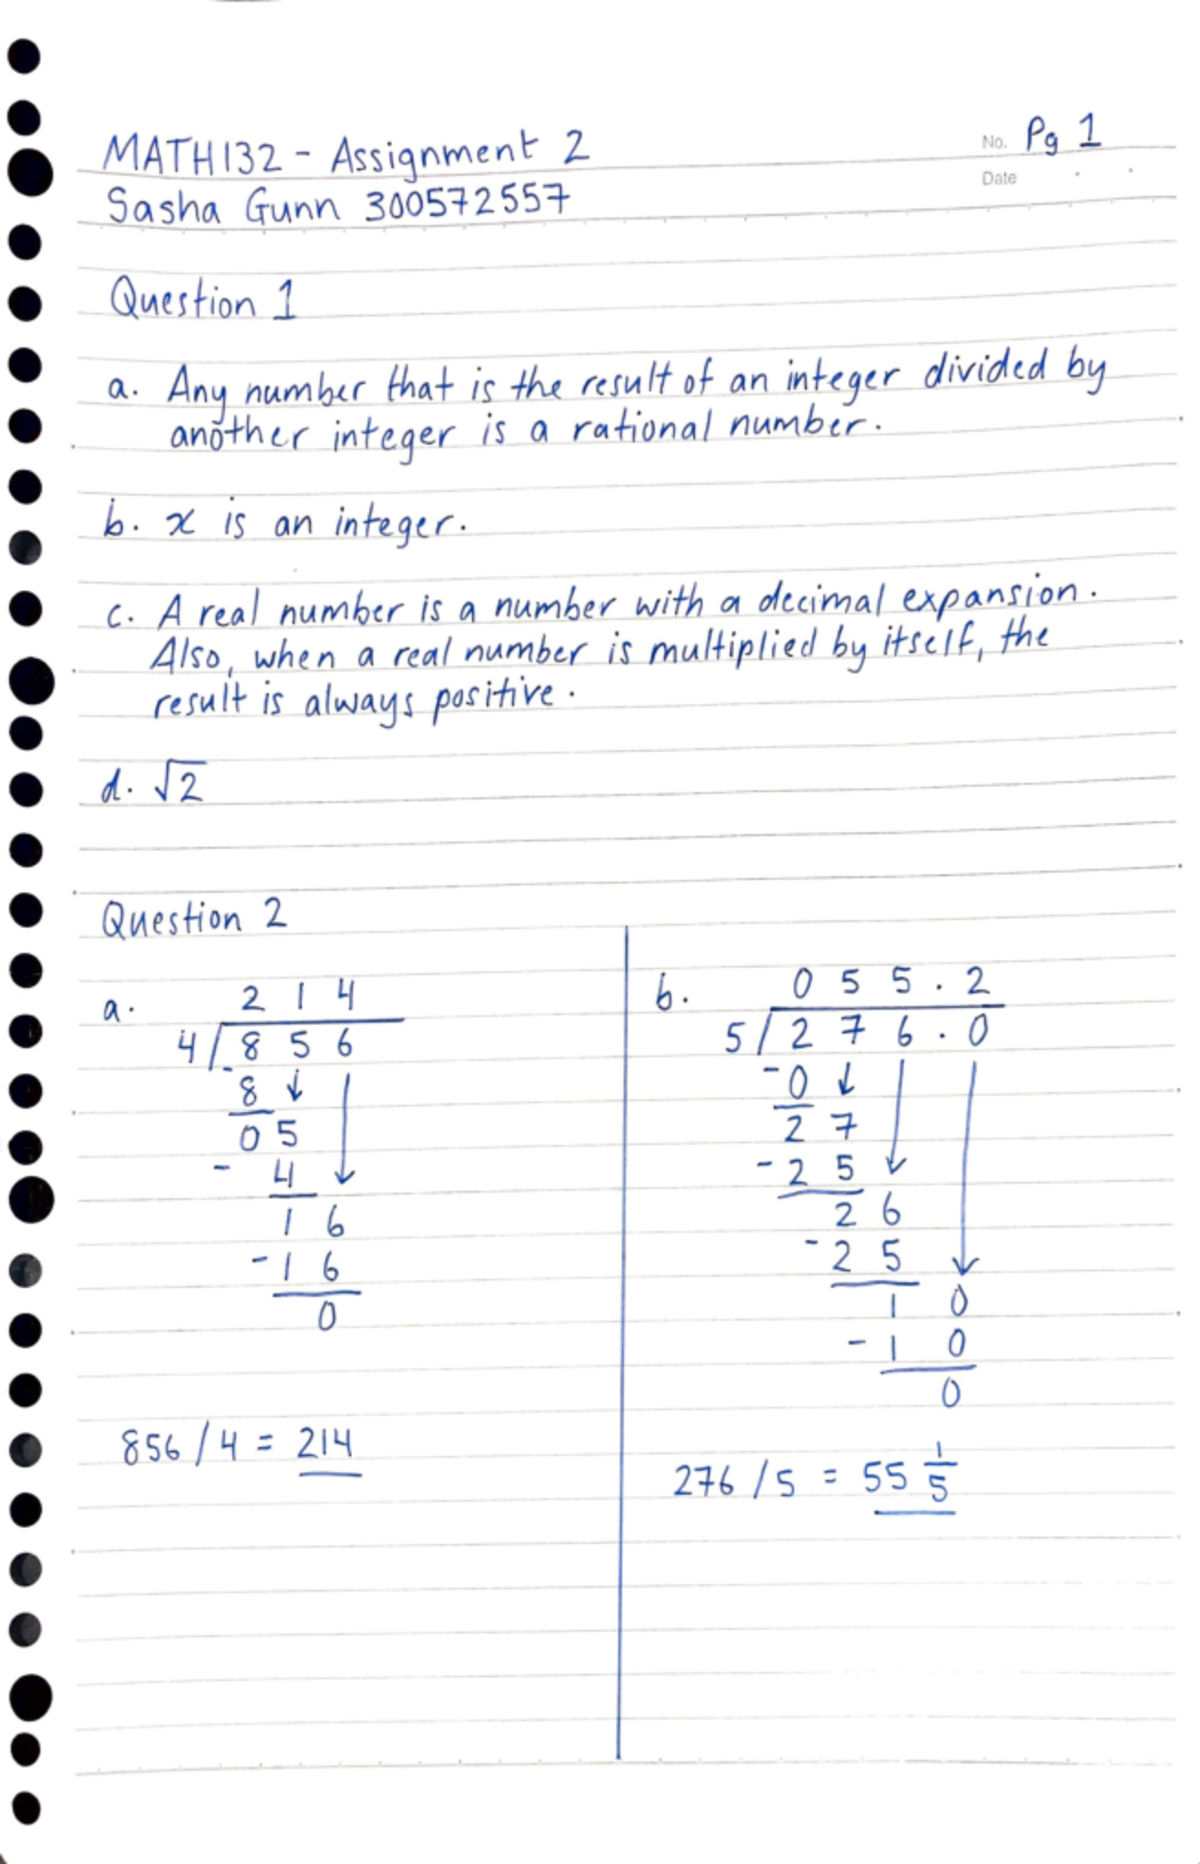 MATH132 - Assignment 2
No. Pg 1
Sasha Gunn 300572557
Date
Question 1
a. Any number that is the result of an integer divided by
another integer is a rational number.
b. x is an integer.
c. A real number is a number with a decimal expansion.
Also, when a real number is multiplied by itself, the
result is always positive.
d. √2
Question 2
a.
2 1 4
4 / 8 5 6
- 8 ↓
0 5
- 4 ↓
1 6
- 1 6
0
856 / 4 = 214
b.
0 5 5 . 2
5 / 2 7 6 . 0
- 0 ↓
2 7
- 2 5 ↓
2 6
- 2 5 ↓
1 0
- 1 0
0
276 / 5 = 55 1/5